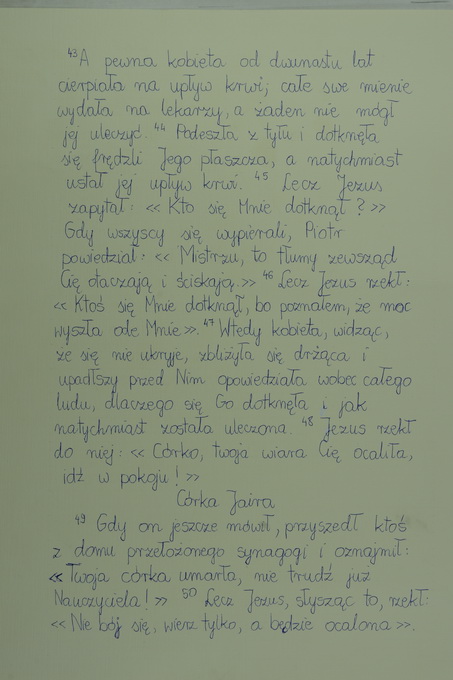 43 A pewna kobieta od dwunastu lat
cierpiała na upływ krwi; całe swe mienie
wydała na lekarzy, a żaden nie mógł
jej uleczyć. 44 Podeszła z tyłu i dotknęła
się frędzli Jego płaszcza, a natychmiast
ustał jej upływ krwi. 45 Lecz Jezus
zapytał: << Kto się Mnie dotknął? >>
Gdy wszyscy się wypierali, Piotr
powiedział: << Mistrzu, to tłumy zewsząd
Cię otaczają i ściskają. >> 46 Lecz Jezus rzekł:
<< Ktoś się Mnie dotknął, bo poznałem, że moc
wyszła ode Mnie >>. 47 Wtedy kobieta, widząc,
że się nie ukryje, zbliżyła się drżąca i
upadłszy przed Nim opowiedziała wobec całego
ludu, dlaczego się Go dotknęła i jak
natychmiast została uleczona. 48 Jezus rzekł
do niej: << Córko, twoja wiara Cię ocaliła,
idź w pokoju! >>
Córka Jaira
49 Gdy on jeszcze mówił, przyszedł ktoś
z domu przełożonego synagogi i oznajmił:
<< Twoja córka umarła, nie trudź już
Nauczyciela! >> 50 Lecz Jezus, słysząc to, rzekł:
<< Nie bój się, wierz tylko, a będzie ocalona >>.